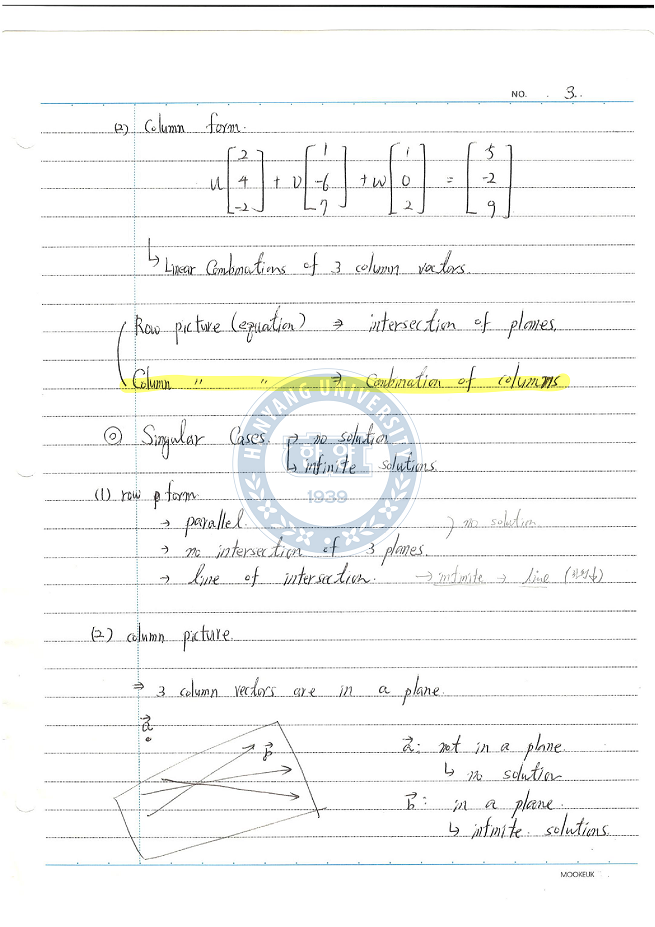 NO. 3.
(2) Column form.
u [2 4 -2] + v [1 -6 7] + w [1 0 2] = [5 -2 9]
↳ Linear Combinations of 3 column vectors.
Row picture (equation) ⇒ intersection of planes.
Column " " ⇒ Combination of columns
HANYANG UNIVERSITY
◎ Singular Cases. → no solution
↳ infinite solutions.
한대
1939
(1) row p form.
→ parallel. ) no solution
→ no intersection of 3 planes.
→ line of intersection. → infinite → line
(2) column picture.
⇒ 3 column vectors are in a plane.
a⃗
b⃗
a⃗: not in a plane.
↳ no solution
b⃗: in a plane.
↳ infinite solutions.
MOOKEUK